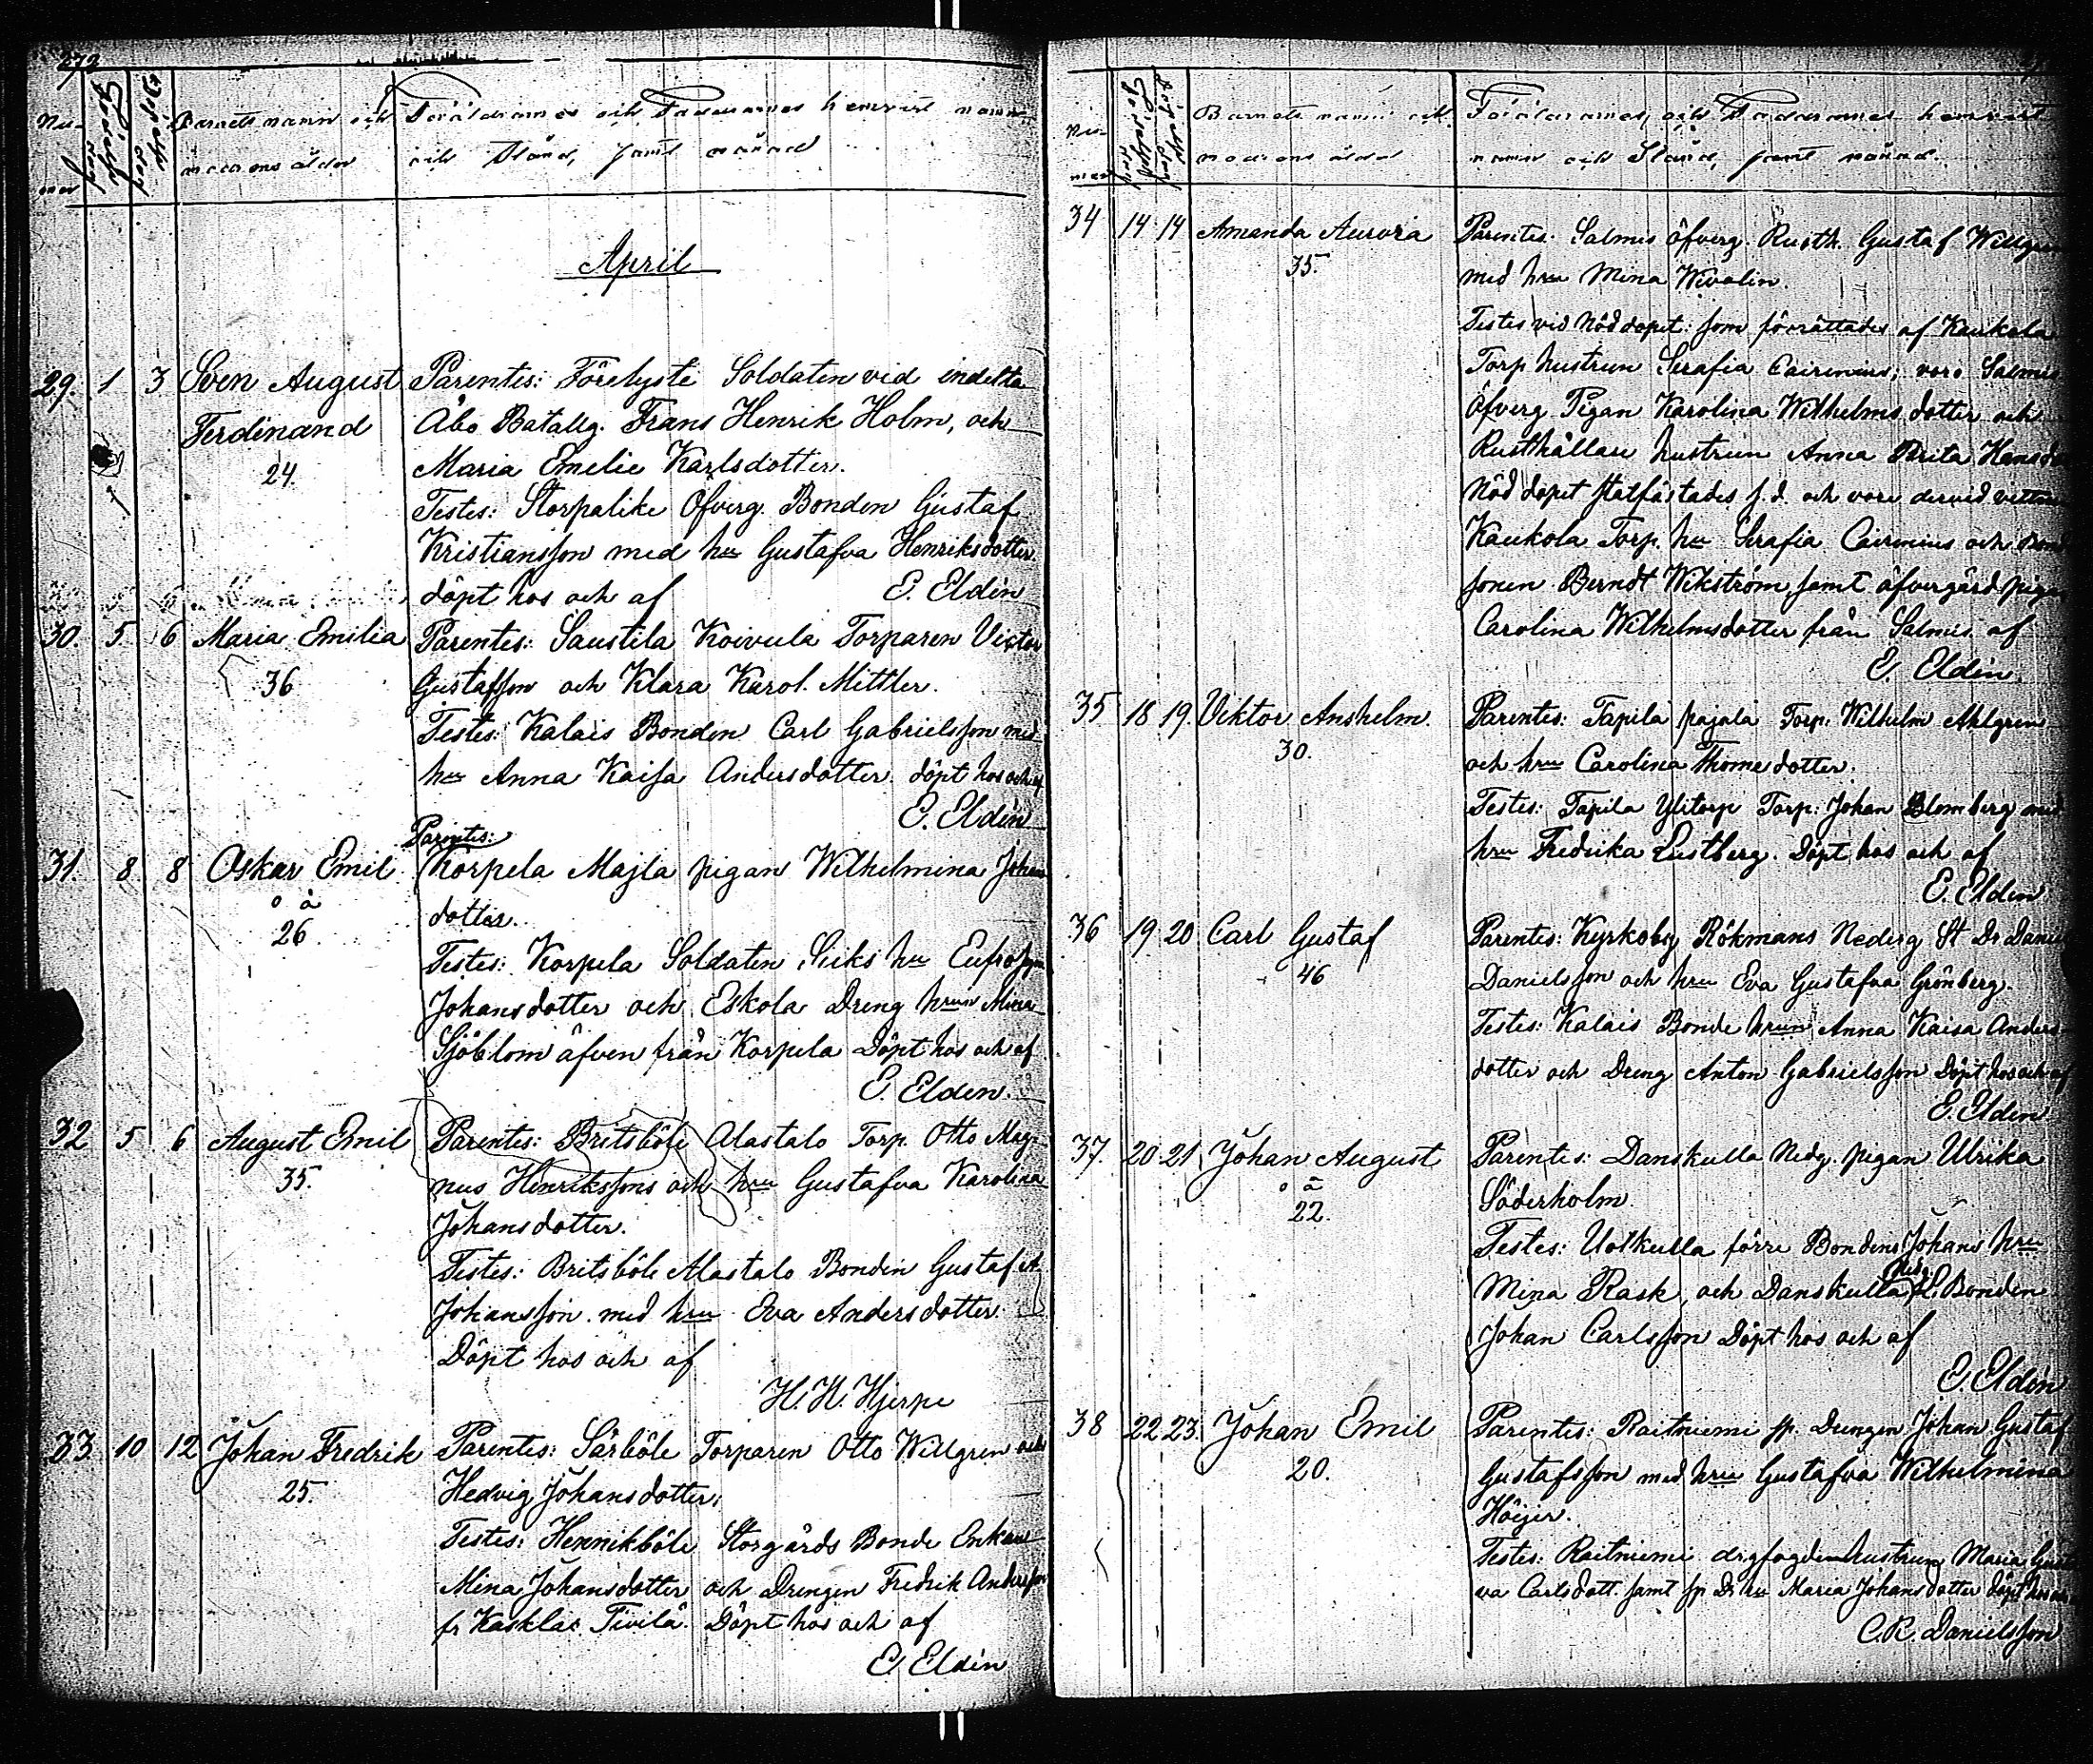 272
Nu-
mer
Födelse dag
Döpelse dag
Barnets namn och
modrens ålder
Föräldrarnes och Faddrarnes hemvist namn
och Stånd, samt månad
April
29. 1 3 Sven August
Ferdinand
24.
Parentes: Förelyste Soldaten vid indelta
Åbo Batallg. Frans Henrik Holm, och
Maria Emelie Karlsdotter.
Testes: Storpalike Öfverg. Bonden Gustaf
Kristiansson med hu Gustafva Henriksdotter.
döpt hos och af E. Eldén
30. 5 6 Maria Emilia
36
Parentes: Saustila Koivula Torparen Victor
Gustafsson och Klara Karol. Mittler.
Testes: Kalais Bonden Carl Gabrielsson med
hu Anna Kaisa Andersdotter döpt hos och af
E. Eldén
31. 8 8 Oskar Emil
o ä
26.
Parentes:
Korpela Majla pigan Wilhelmina Johans
dotter.
Testes: Korpela Soldaten Siiks hu Eufrosyna
Johansdotter och Eskola Dreng hrun Mina
Sjöblom äfven från Korpela Döpt hos och af
E. Eldén.
32 5 6 August Emil
35.
Parentes: Britsböle Alastalo Torp. Otto Mag-
nus Henrikssons och hru Gustafva Karolina
Johansdotter.
Testes: Britsböle Alastalo Bonden Gustaf A.
Johansson med hru Eva Andersdotter.
Döpt hos och af
H. H. Hjerpe
33 10 12 Johan Fredrik
25.
Parentes: Särböle Torparen Otto Willgren och
Hedvig Johansdotter,
Testes: Hennikböle Storgårds Bonde Enkan
Mina Johansdotter och Drengen Fredrik Andersson
fr. Kasklas Tivilä. Döpt hos och af
E. Eldén
Nu-
mer
Födelse dag
Döpelse dag
Barnets namn och
modrens ålder
Föräldrarnes och Faddrarnes hemvist
namn och Stånd, samt månad.
34 14 14 Amanda Aurora
35.
Parentes: Salmis Öfverg. Rusth. Gustaf Willgren
med hru Mina Wivolin.
Testes vid Nöddopet: som förrättades af Kaukola
Torp hustrun Serafia Cairenius; voro Salmis
Öfverg. Pigan Karolina Wilhelmsdotter och
Rusthållare hustrun Anna Brita Hansd
Nöddopet statfästades s.d. och voro dervid vittne
Kaukola Torp. hu Serafia Cairenius och Bond
sonen Berndt Wikström samt öfvergård piga
Carolina Wilhelmsdotter från Salmis af
E. Eldén.
35 18 19 Viktor Anshelm.
30.
Parentes: Tapila pajala Torp: Wilhelm Ahlgren
och hru Carolina Thomedotter.
Testes: Tapila Ylitorp Torp: Johan Blomberg med
hru Fredrika Lustberg. Döpt hos och af
E. Eldén
36 19 20 Carl Gustaf
46
Parentes: Kyrkoby Rökmans Nederg St Dr Daniel
Danielsson och hru Eva Gustafva Grönberg.
Testes: Kalais Bonde hrun Anna Kaisa Anders
dotter och Dreng Anton Gabrielsson Döpt hos och af
E. Eldén
37. 20 21 Johan August
o ä
22.
Parentes: Danskulla Nedg. pigan Ulrika
Söderholm.
Testes: Uolkulla förre Bondens Johans hru
Mina Rask, och Danskulla Nedg. Bonden
Johan Carlsson Döpt hos och af
E. Eldén
38 22 23 Johan Emil
20.
Parentes: Raitniemi sp. Drengen Johan Gustaf
Gustafsson med hru Gustafva Wilhelmina
Höijer.
Testes: Raitniemi drgfogden hustrun Maria Gusta
va Carlsdott. samt sp Dr hu Maria Johansdotter döpt hos och
C. R. Danielsson